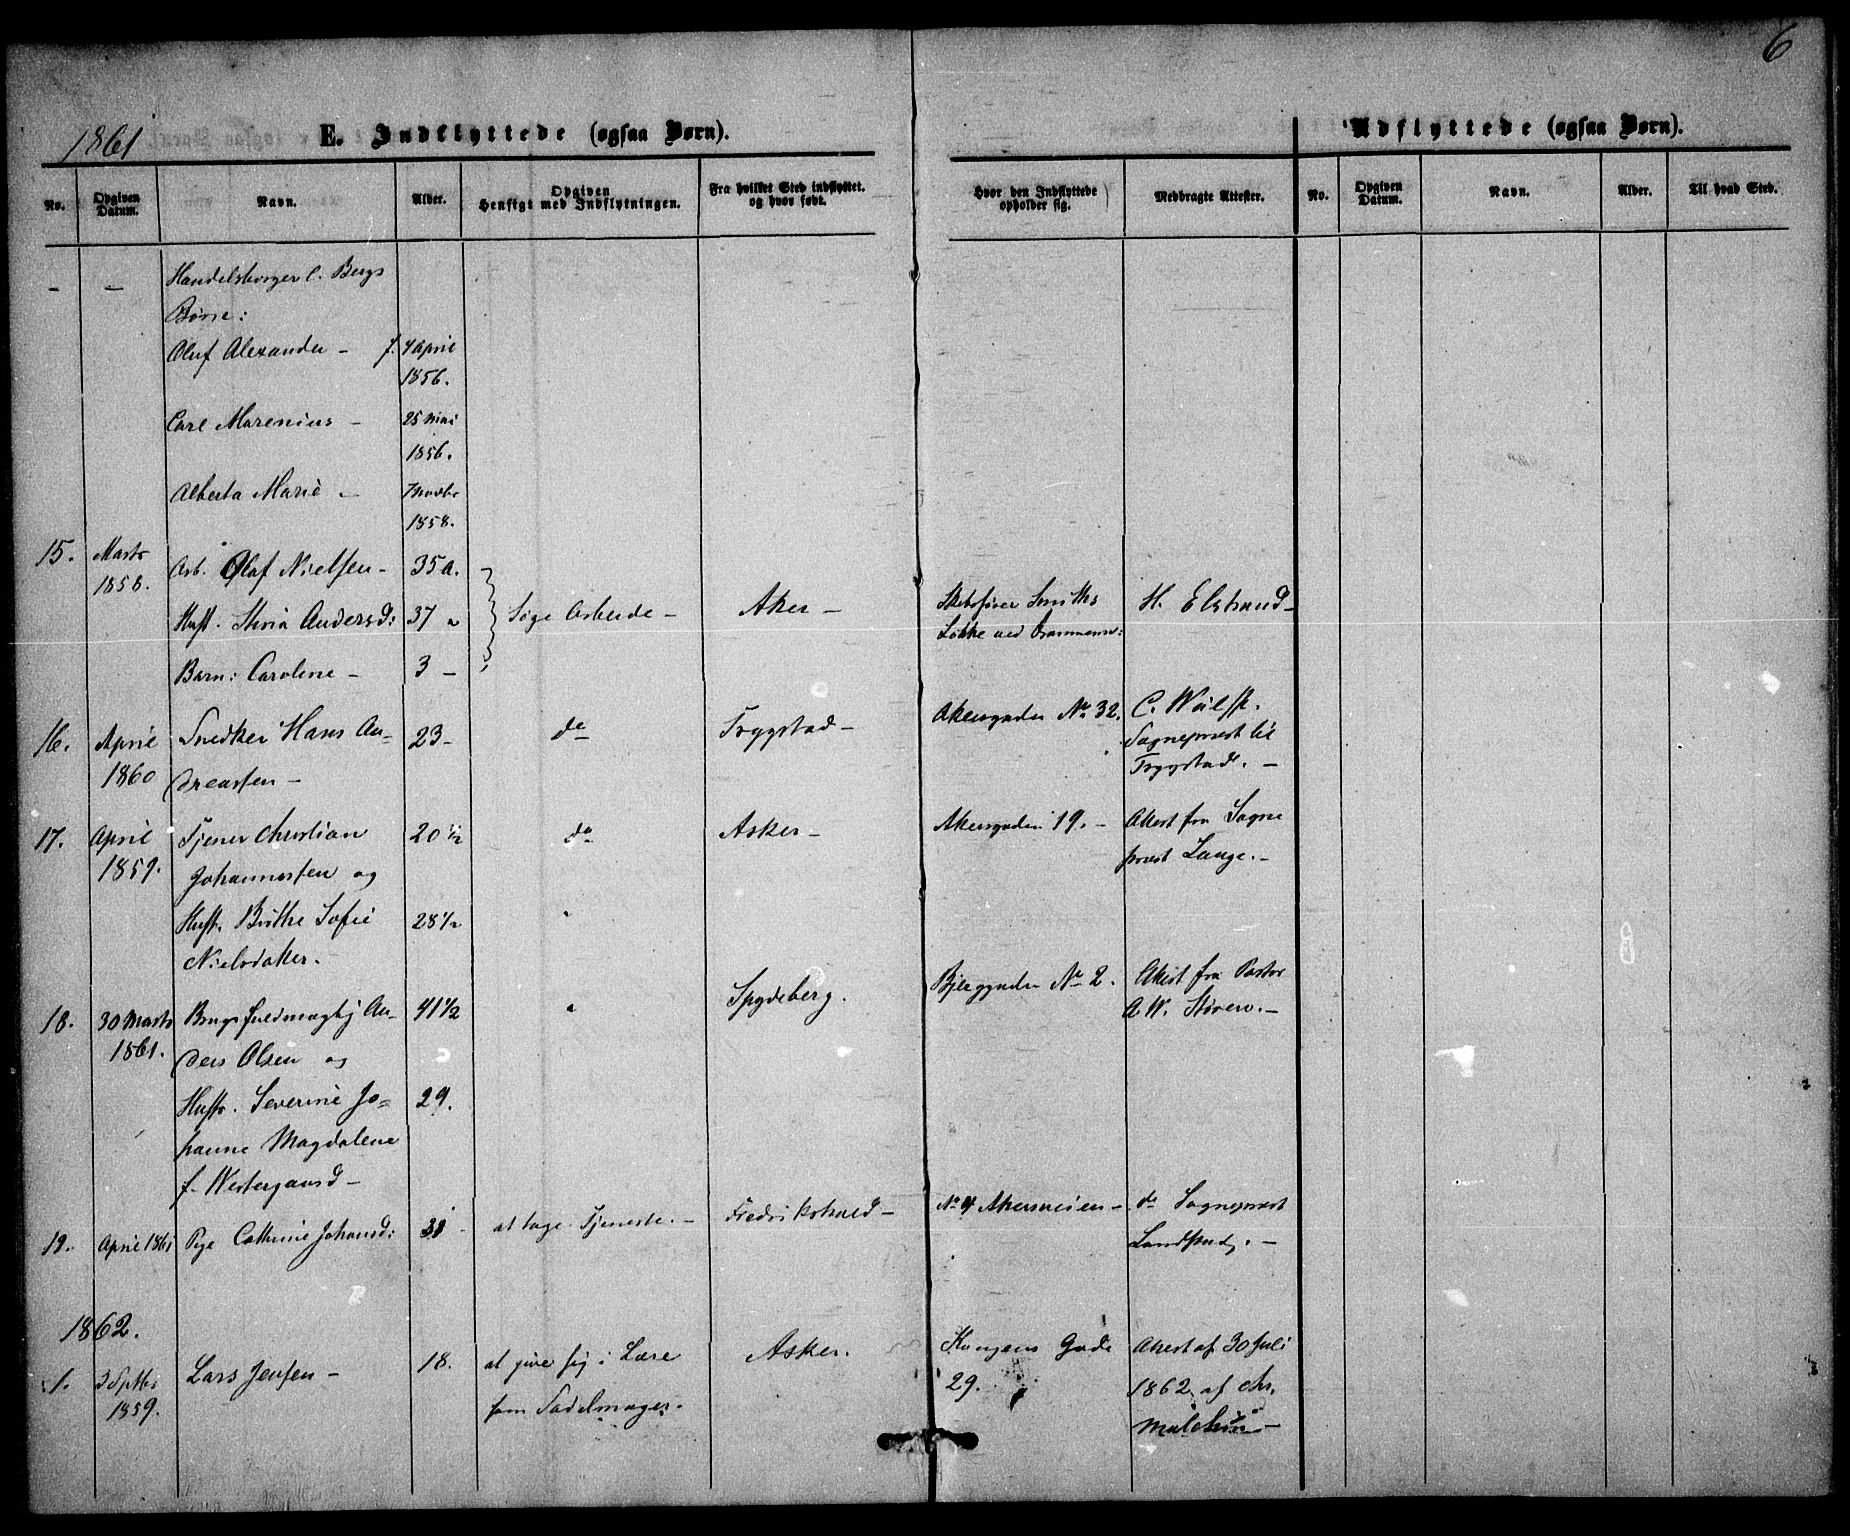 6
1861
E. Indflyttede (ogsaa Børn).
Udflyttede (ogsaa Børn).
No.
Opgiven Datum.
Navn.
Alder.
Opgiven Hensigt med Indflytningen.
Fra hvilket Sted indflyttet. og hvor født.
Hvor den Indflyttede opholder sig.
Medbragte Attester.
No.
Opgiven Datum.
Navn.
Alder.
Til hvad Sted.
– – Handelsborger C. Bergs
Børn:
Oluf Alexander – f. 4 April
1856.
Carl Marenius – 25 Mai
1856.
Alberta Marie – 7 Novbr
1858.
15. Marts 1858. Arb. Olaf Nielsen – 35 a. Søge Arbeide – Aker – Løkke ved H. Elstrand –
Hust. Andersd: 37 "
Barn: Caroline – 3 –
16. April 1860 Snedker Hans An- 23 – do Trygstad – Akersgaden No 32. C. Wulff.
dreassen – Sognepræst til
Trygstad. –
17. April 1859. Tjener Christian 20 1/2 do Asker – Akersgaden 19. – Attest fra Sogne
Johannessen og præst Lange. –
Hust. Birthe Sofie 28 1/2 "
Nielsdatter.
18. 30 Marts 1861. Brugsfuldmægtig An- 41 1/2 " Spydeberg. No 2. Attest fra Pastor
ders Olsen og A W. Støren. –
Hustr. Severine Jo- 29.
hanne Magdalene
f. Westergaard –
19. April 1861 Pige Cathrine Johansd: at tage Tjeneste. – Fredrikshald – No 4 Akersveien – do Sognepræst
1862.
1. 3 Septbr 1859. Lars Jensen – 18. at give sig i Lære Asker. Kongens Gade Attest af 30 Juli
som Sadelmager. 29. 1862 af Chr.